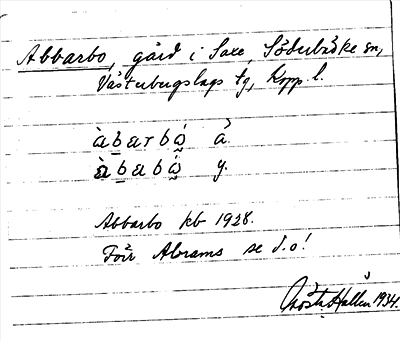 Abbarbo, gård i Saxe, Söderbärke sn,
Västerbergslags tg, Kopp. l.
àbarbǫ́ ä.
àbabǫ́ y.
Abbarbo kb 1928.
Förr Abrams se d.o!
Gösta Hallén 1934.